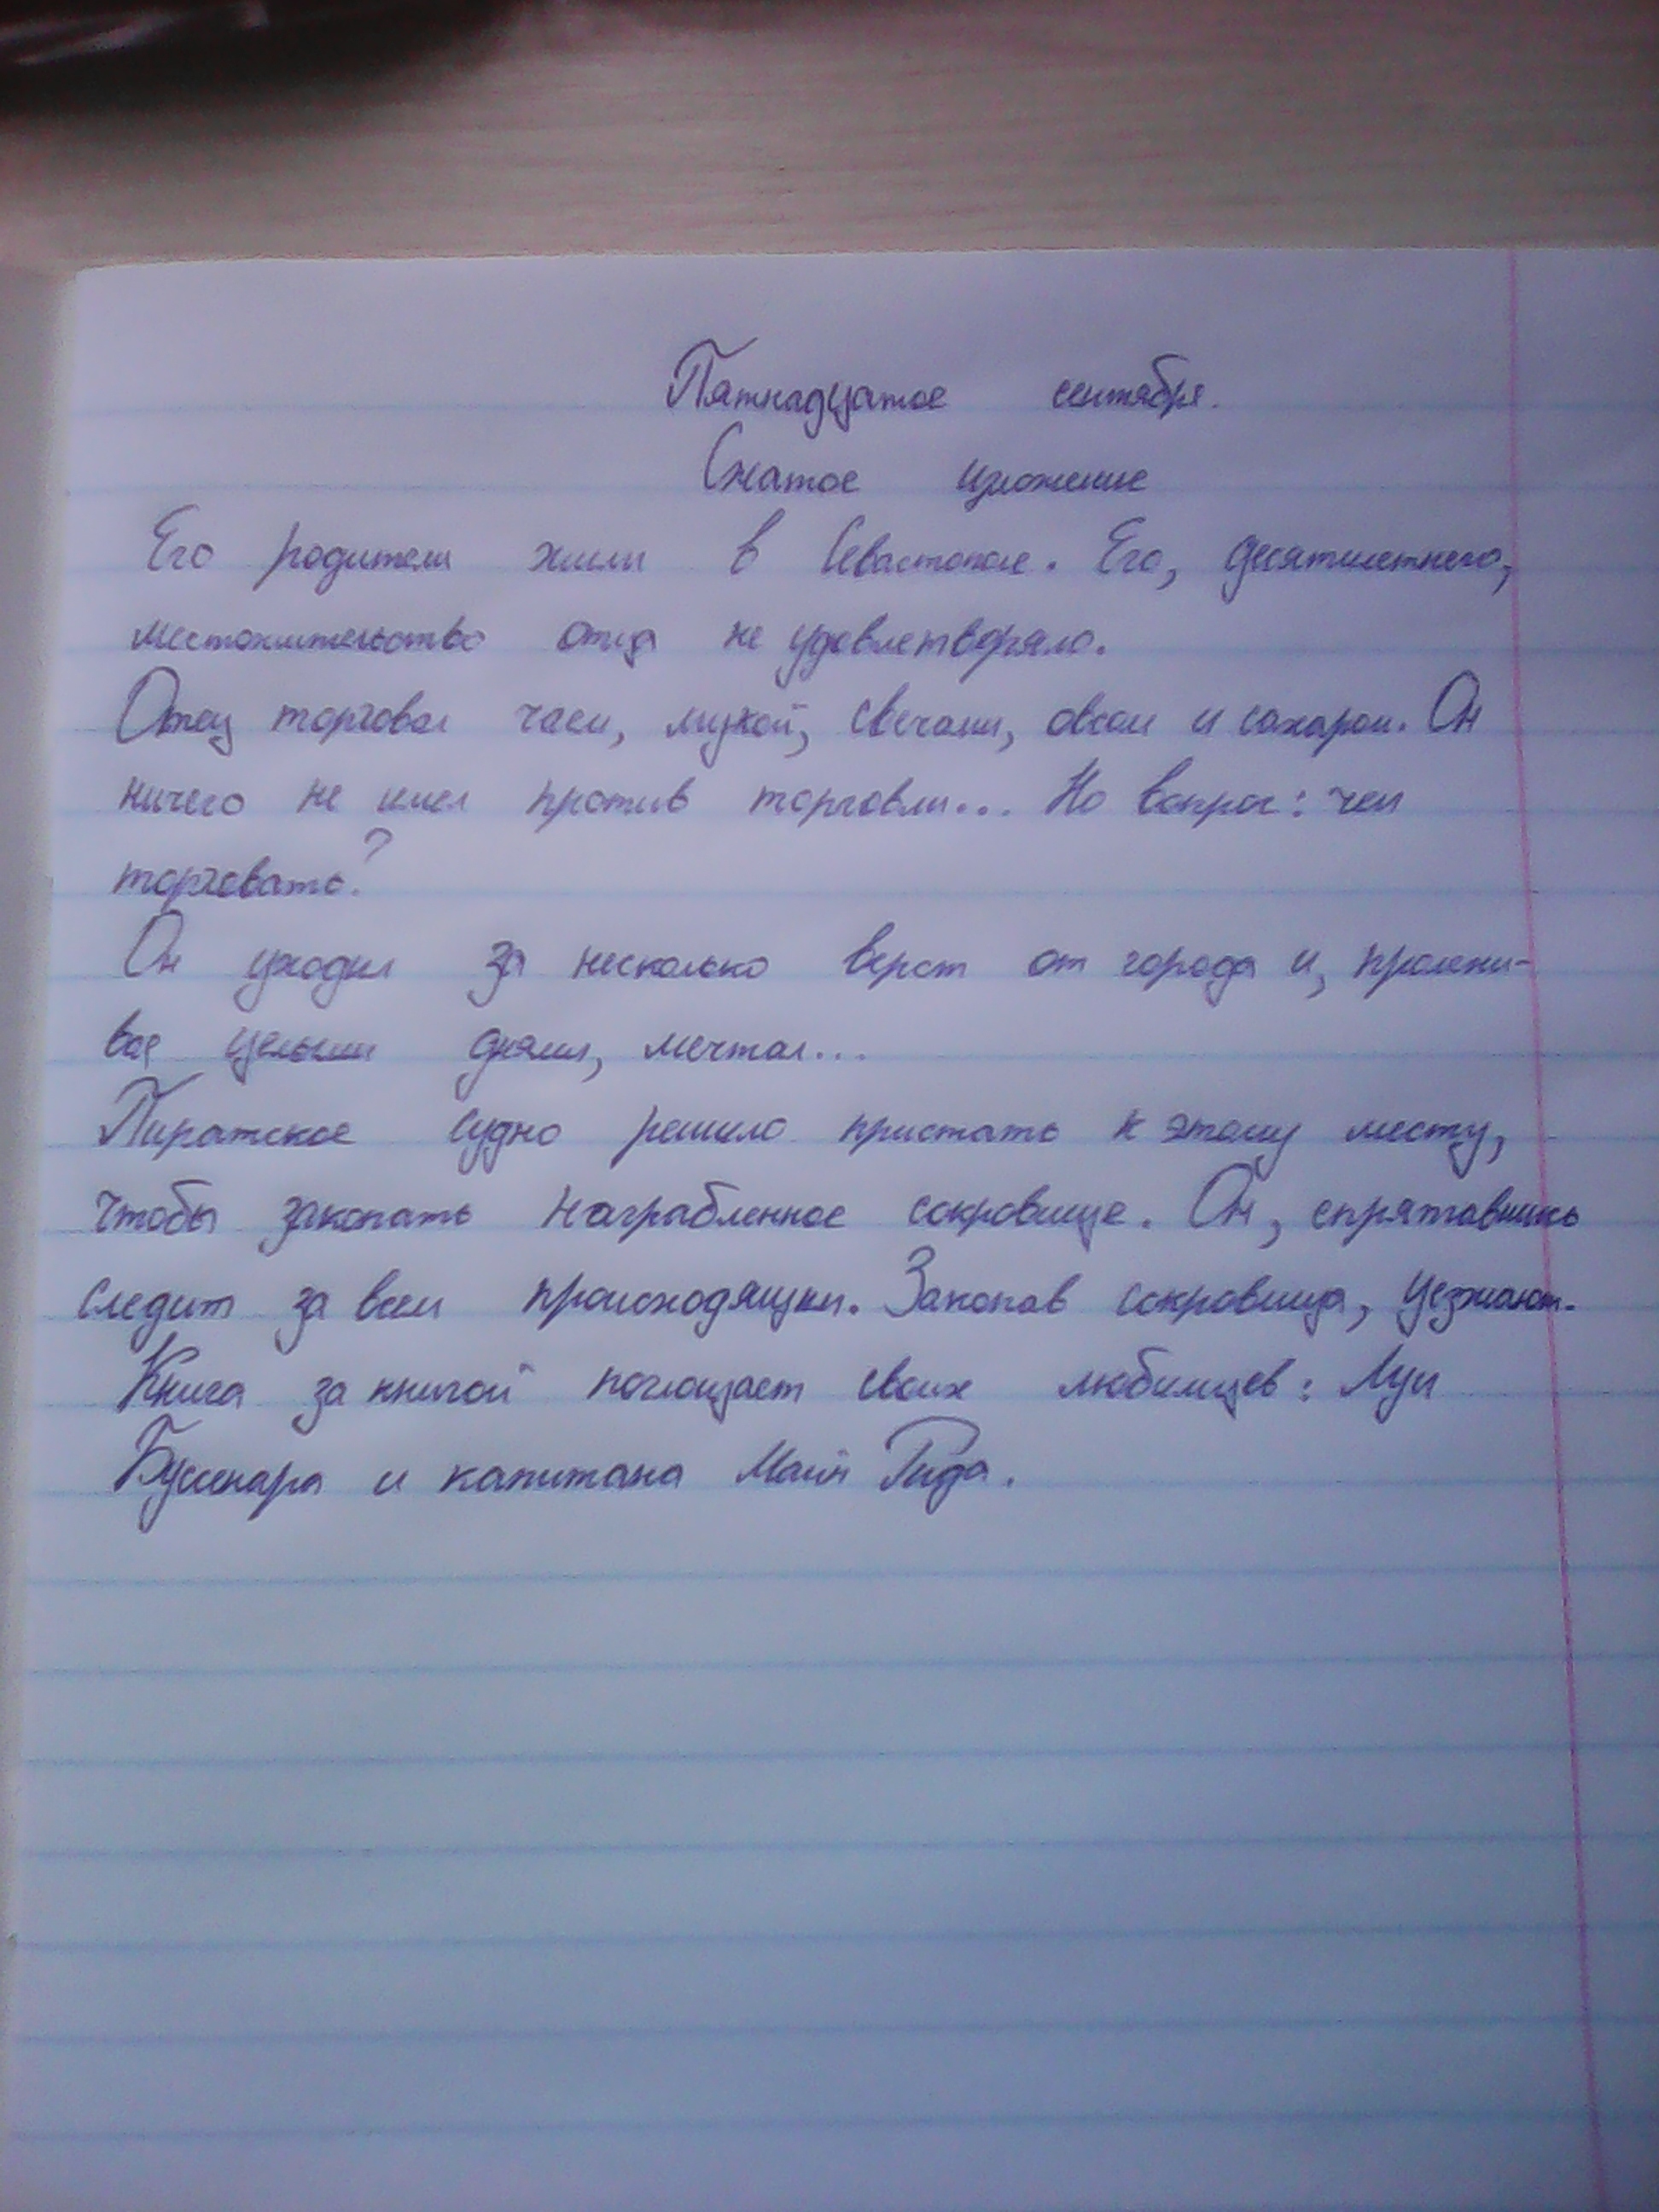 Пятнадцатое сентября.
Сжатое изложение
Его родители жили в Севастополе. Его, десятилетнего,
местожительство отца не удовлетворяло.
Отец торговал чаем, мукой, свечами, овсом и сахаром. Он
ничего не имел против торговли... Но вопрос: чем
торговать?
Он уходил за несколько верст от города и, пролежи-
вая целыми днями, мечтал...
Пиратское судно решило пристать к этому месту,
чтобы закопать награбленное сокровище. Он, спрятавшись
следит за всем происходящим. Закопав сокровища, уезжают.
Книга за книгой поглощает своих любимцев: Луи
Буссенара и капитана Майн Рида.